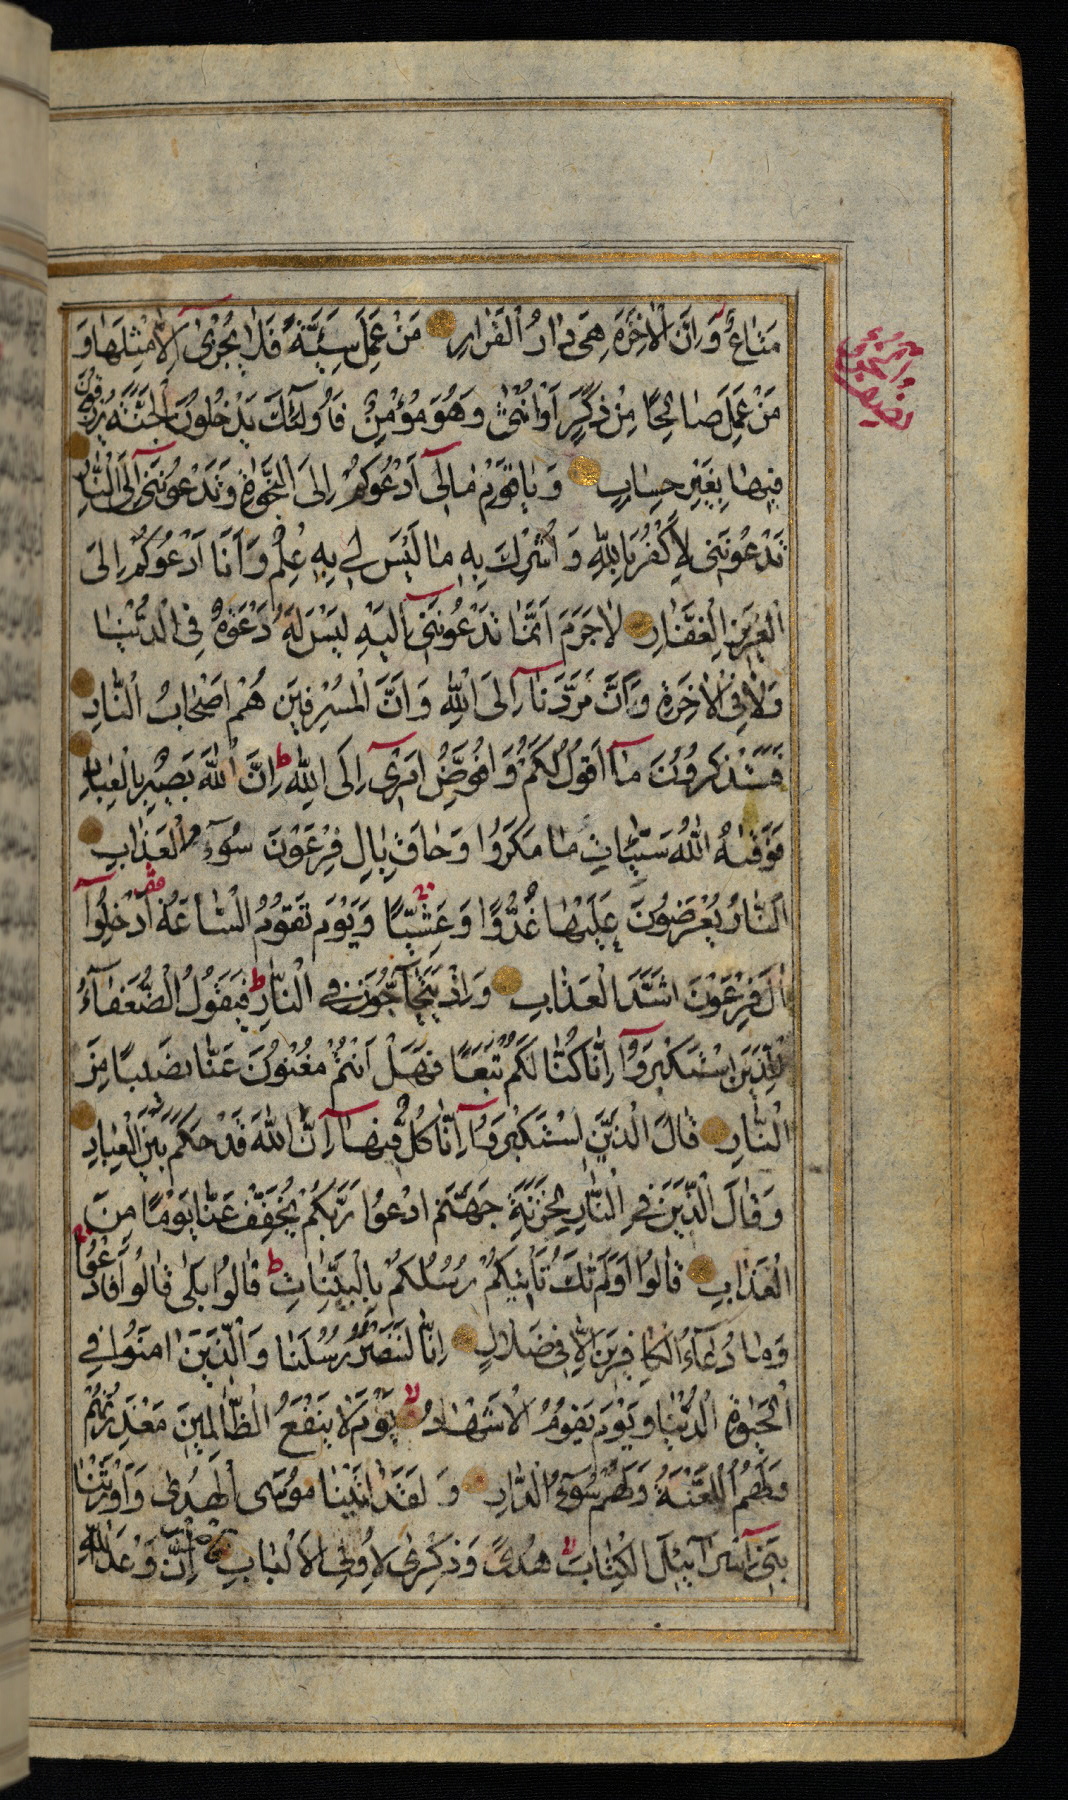 مَتَاعٌ وَاِنَّ الْاٰخِرَةَ هِيَ دَارُ الْقَرَارِ مَنْ عَمِلَ سَيِّئَةً فَلَا يُجْزٰى اِلَّا مِثْلَهَا وَ
مَنْ عَمِلَ صَالِحًا مِنْ ذَكَرٍ اَوْ اُنْثٰى وَهُوَ مُؤْمِنٌ فَاُولٰئِكَ يَدْخُلُونَ الْجَنَّةَ يُرْزَقُونَ
فِيهَا بِغَيْرِ حِسَابٍ وَيَاقَوْمِ مَالِىٓ اَدْعُوكُمْ اِلَى النَّجٰوةِ وَتَدْعُونَنِىٓ اِلَى النَّارِ
تَدْعُونَنِى لِاَكْفُرَ بِاللّٰهِ وَاُشْرِكَ بِهِ مَا لَيْسَ لِى بِهِ عِلْمٌ وَاَنَا اَدْعُوكُمْ اِلَى
الْعَزِيزِ الْغَفَّارِ لَاجَرَمَ اَنَّمَا تَدْعُونَنِىٓ اِلَيْهِ لَيْسَ لَهُ دَعْوَةٌ فِى الدُّنْيَا
وَلَا فِى الْاٰخِرَةِ وَاَنَّ مَرَدَّنَآ اِلَى اللّٰهِ وَاَنَّ الْمُسْرِفِينَ هُمْ اَصْحَابُ النَّارِ
فَسَتَذْكُرُونَ مَآ اَقُولُ لَكُمْ وَاُفَوِّضُ اَمْرِىٓ اِلَى اللّٰهِ ط اِنَّ اللّٰهَ بَصِيرٌ بِالْعِبَادِ
فَوَقٰىهُ اللّٰهُ سَيِّئَاتِ مَا مَكَرُوا وَحَاقَ بِاٰلِ فِرْعَوْنَ سُوٓءُ الْعَذَابِ
اَلنَّارُ يُعْرَضُونَ عَلَيْهَا غُدُوًّا وَعَشِيًّا وَيَوْمَ تَقُومُ السَّاعَةُ اَدْخِلُوٓا
اٰلَ فِرْعَوْنَ اَشَدَّ الْعَذَابِ وَاِذْ يَتَحَآجُّونَ فِى النَّارِ ط فَيَقُولُ الضُّعَفَآءُ
لِلَّذِينَ اسْتَكْبَرُوٓا اِنَّا كُنَّا لَكُمْ تَبَعًا فَهَلْ اَنْتُمْ مُغْنُونَ عَنَّا نَصِيبًا مِنَ
النَّارِ قَالَ الَّذِينَ اسْتَكْبَرُوٓا اِنَّا كُلٌّ فِيهَآ اِنَّ اللّٰهَ قَدْ حَكَمَ بَيْنَ الْعِبَادِ
وَقَالَ الَّذِينَ فِى النَّارِ لِخَزَنَةِ جَهَنَّمَ ادْعُوا رَبَّكُمْ يُخَفِّفْ عَنَّا يَوْمًا مِنَ
الْعَذَابِ قَالُوٓا اَوَلَمْ تَكُ تَاْتِيكُمْ رُسُلُكُمْ بِالْبَيِّنَاتِ ط قَالُوا بَلٰى قَالُوا فَادْعُوا
وَمَا دُعَآءُ الْكَافِرِينَ اِلَّا فِى ضَلَالٍ اِنَّا لَنَنْصُرُ رُسُلَنَا وَالَّذِينَ اٰمَنُوا فِى
الْحَيٰوةِ الدُّنْيَا وَيَوْمَ يَقُومُ الْاَشْهَادُ لا يَوْمَ لَا يَنْفَعُ الظَّالِمِينَ مَعْذِرَتُهُمْ
وَلَهُمُ اللَّعْنَةُ وَلَهُمْ سُوٓءُ الدَّارِ وَلَقَدْ اٰتَيْنَا مُوسَى الْهُدٰى وَاَوْرَثْنَا
بَنِىٓ اِسْرَآئِيلَ الْكِتَابَ لا هُدًى وَذِكْرٰى لِاُولِى الْاَلْبَابِ فَاصْبِرْ اِنَّ وَعْدَ اللّٰهِ